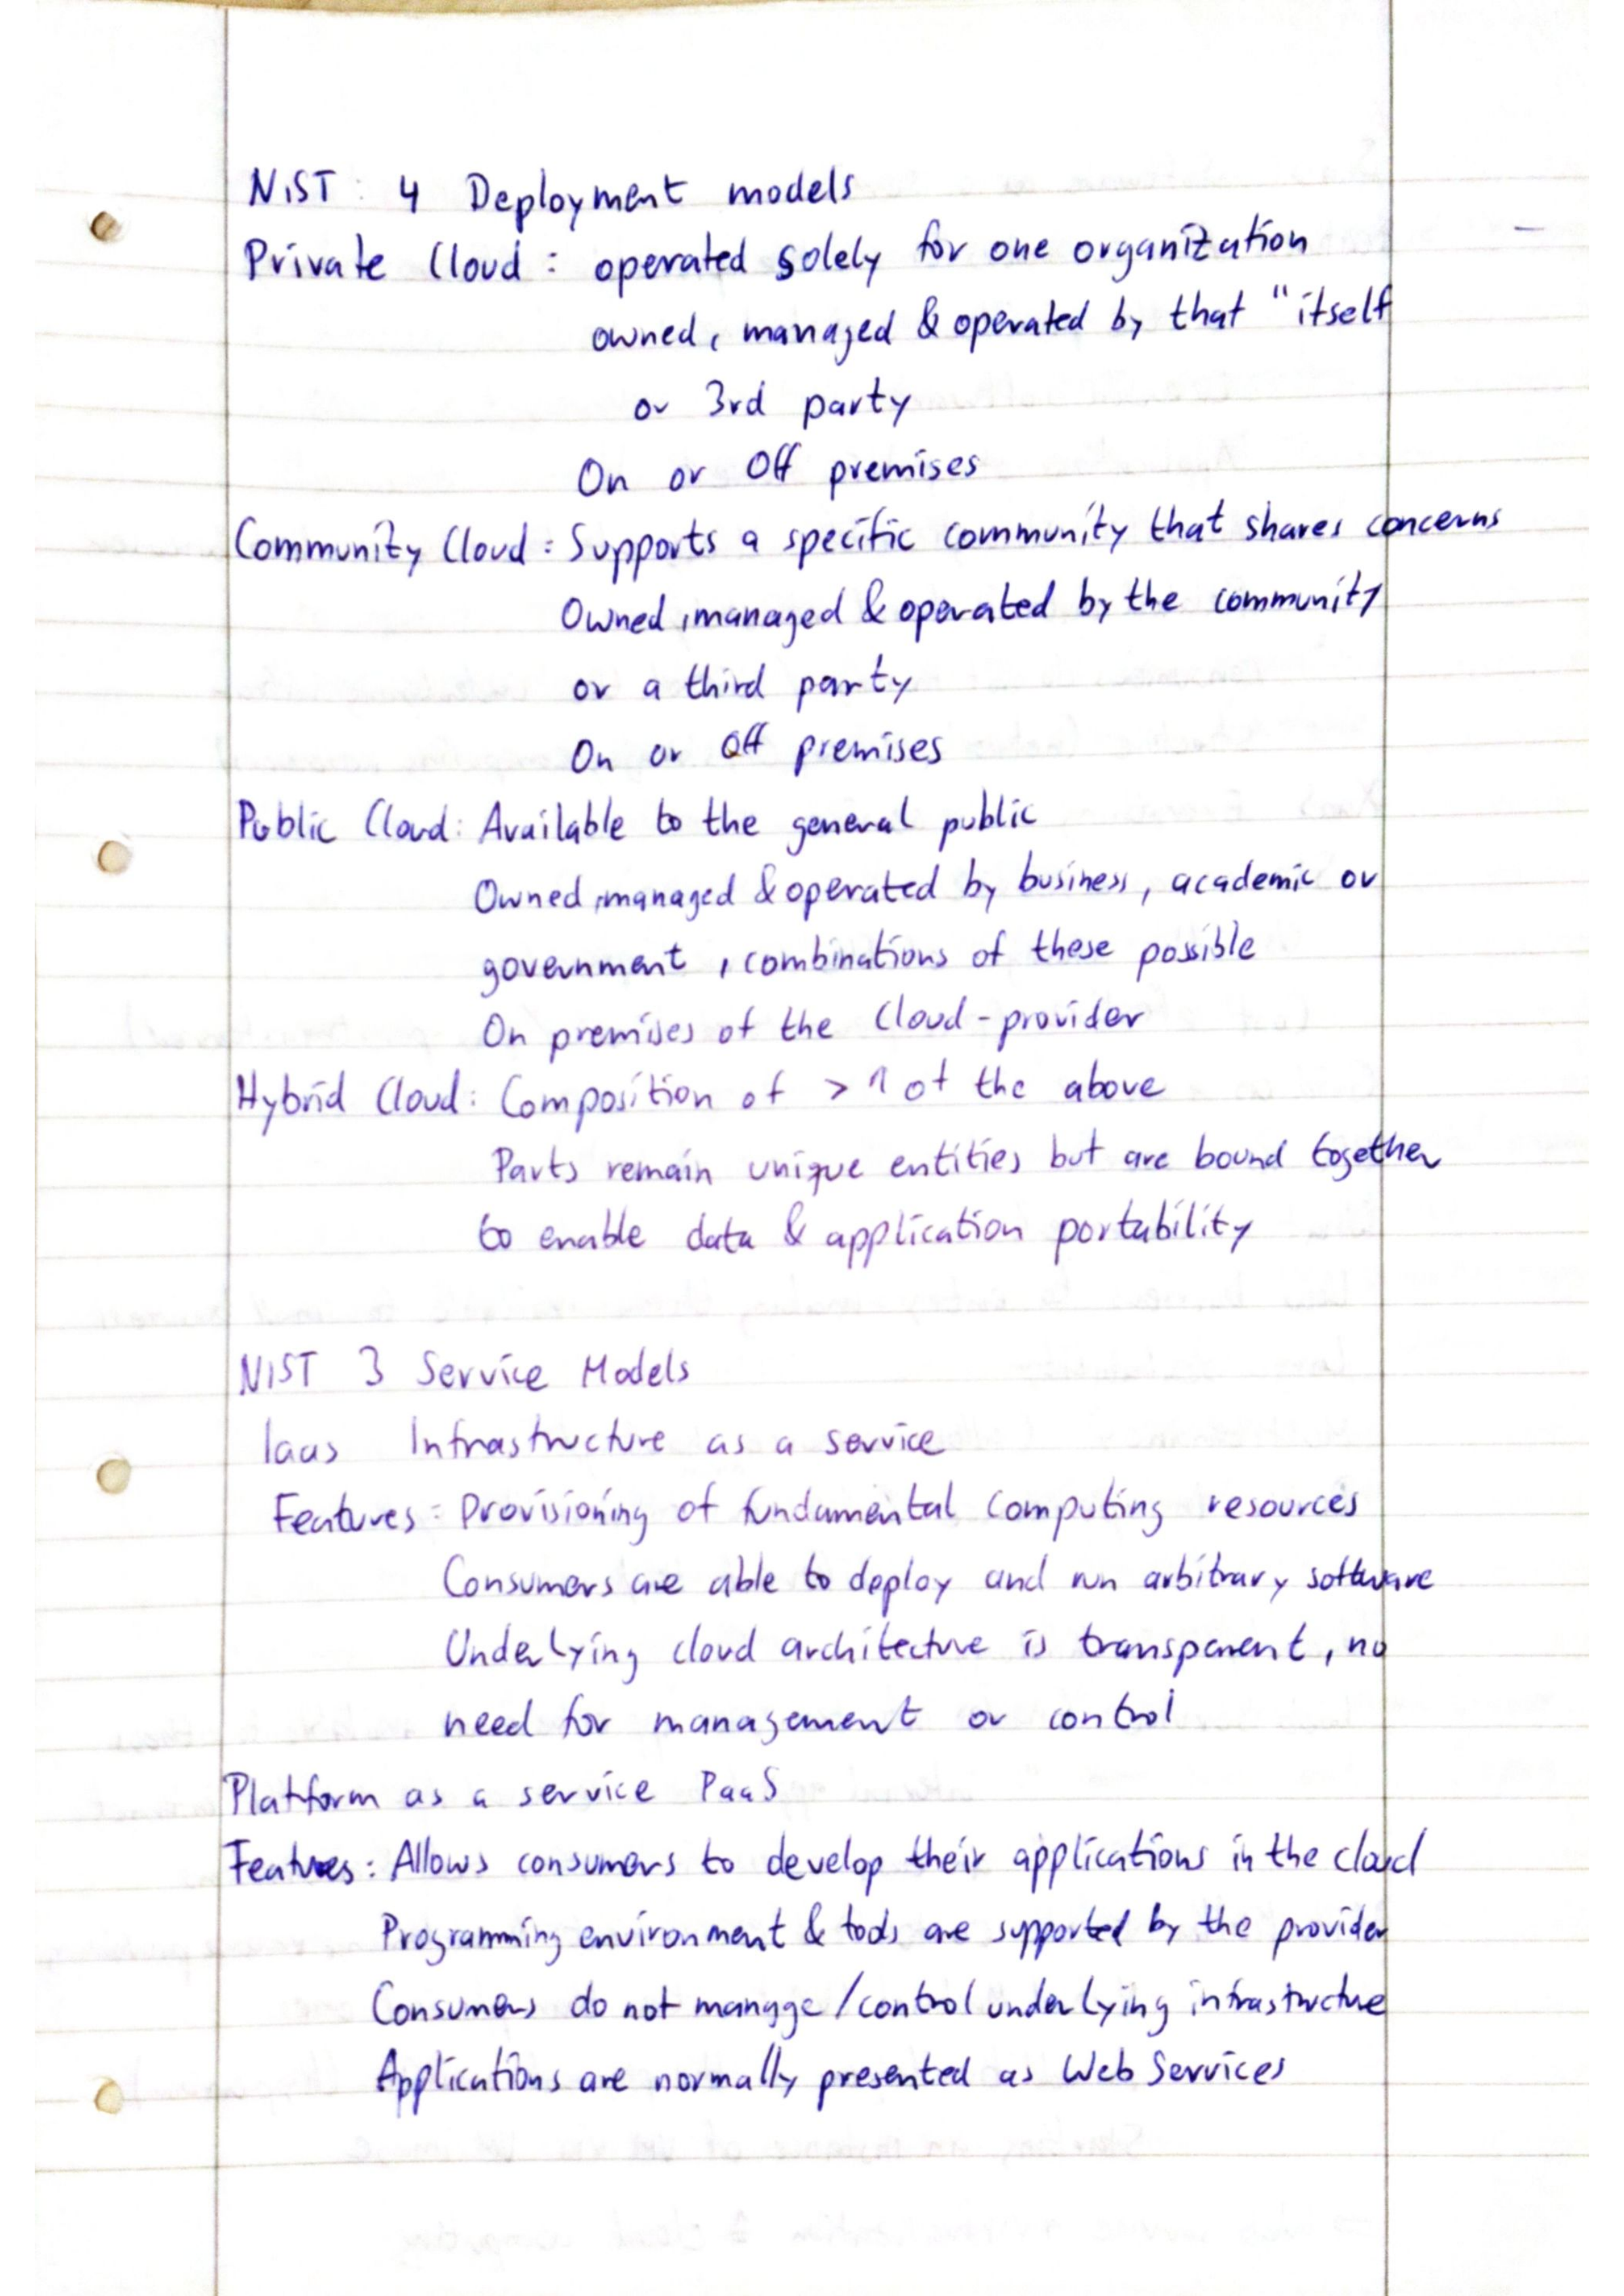 NIST: 4 Deployment models
Private Cloud: operated solely for one organization
owned, managed & operated by that "itself
or 3rd party
On or Off premises
Community Cloud: Supports a specific community that shares concerns
Owned, managed & operated by the community
or a third party
On or Off premises
Public Cloud: Available to the general public
Owned, managed & operated by business, academic or
government, combinations of these possible
On premises of the Cloud-provider
Hybrid Cloud: Composition of > 1 of the above
Parts remain unique entities but are bound together
to enable data & application portability
NIST 3 Service Models
Iaas Infrastructure as a service
Features: Provisioning of fundamental computing resources
Consumers are able to deploy and run arbitrary software
Underlying cloud architecture is transparent, no
need for management or control
Platform as a service PaaS
Features: Allows consumers to develop their applications in the cloud
Programming environment & tools are supported by the provider
Consumers do not manage/control underlying infrastructure
Applications are normally presented as Web Services